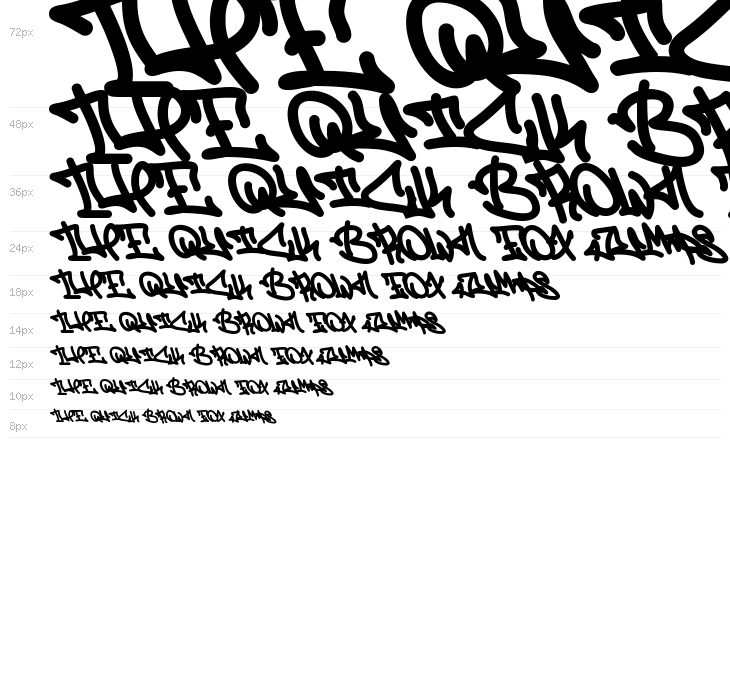 72px THE QUIC
48px THE QUICK BR
36px THE QUICK BROWN
24px THE QUICK BROWN FOX JUMPS
18px THE QUICK BROWN FOX JUMPS
14px THE QUICK BROWN FOX JUMPS
12px THE QUICK BROWN FOX JUMPS
10px THE QUICK BROWN FOX JUMPS
8px THE QUICK BROWN FOX JUMPS